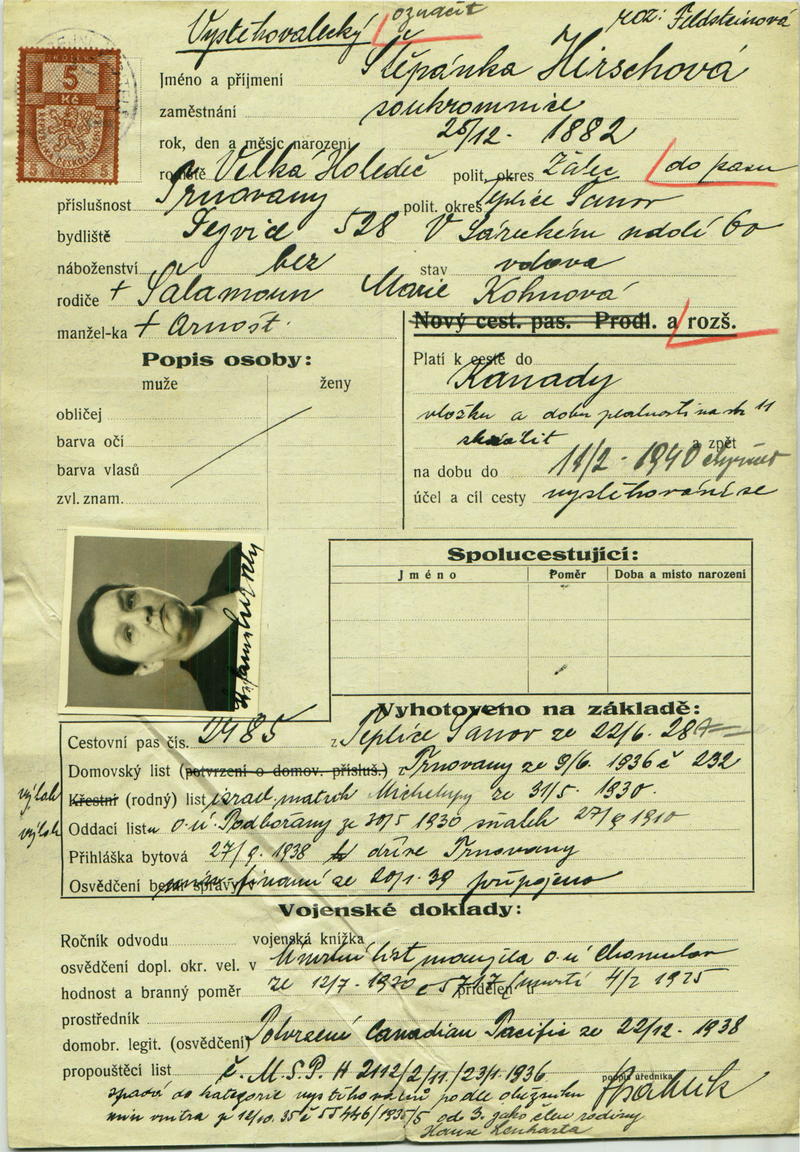 Vystěhovalecký označit roz: Feldsteinová
5
Kč
Jméno a příjmení Štěpánka Hirschová
zaměstnání soukromnice
rok, den a měsíc narození 25/12. 1882
rodiště Velká Holedeč polit. okres Žatec do pasu
příslušnost Trnovany polit. okres Teplice Šanov
bydliště Dejvice 528 V Šáreckém údolí 60
náboženství bez stav vdova
rodiče + Salamoun Marie Kohnová
manžel-ka + Arnošt.
Nový cest. pas. Prodl. a rozš.
Popis osoby:
muže ženy
obličej
barva očí
barva vlasů
zvl. znam.
Platí k cestě do
Kanady
vložku a dobu platnosti na str 11
zkrátit a zpět
na dobu do 11/2 - 1940
účel a cíl cesty vystěhování se
Spolucestující:
Jméno Poměr Doba a místo narození
Vyhotoveno na základě:
Cestovní pas čís. 2485 z Teplice Šanov ze 22/6. 28
Domovský list (potvrzení o domov. přísluš.) Trnovany ze 9/6. 1936 č 232
výtah Křestní (rodný) list israel. matrik ze 31/5. 1930.
výtah Oddací list o. ú. Podbořany ze 30/5 1930 sňatek 27/9 1910
Přihláška bytová 27/9. 1938 dříve Trnovany
Osvědčení berní správy finanční ze 20/1. 39 připojeno
Vojenské doklady:
Ročník odvodu vojenská knížka
osvědčení dopl. okr. vel. v Úmrtní list manžela o. ú Chomutov
hodnost a branný poměr ze 12/7 - 1930 přidělen úmrtí 4/2 1925
prostředník
domobr. legit. (osvědčení) Potvrzení Canadian Pacific ze 22/12. 1938
propouštěcí list č. M.S.P. H 2112/2/11./23/1. 1936 podpis úředníka
spadá do kategorie vystěhování podle oběžníku
min vnitra 12/10. 35 od 3. jako člen rodiny